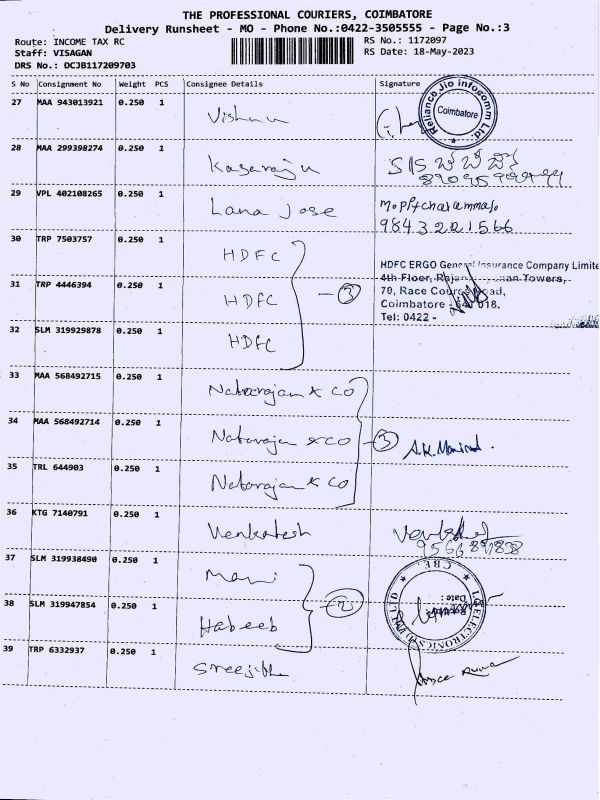 THE PROFESSIONAL COURIERS, COIMBATORE
Delivery Runsheet - MO - Phone No.:0422-3505555 - Page No.:3
Route: INCOME TAX RC
RS No.: 1172097
Staff: VISAGAN
RS Date: 18-May-2023
DRS No.: DCJB117209703
S No Consignment No Weight PCS Consignee Details Signature
27 MAA 943013921 0.250 1 Vishnu
Reliance Jio Infocomm Ltd.
Coimbatore
28 MAA 299398274 0.250 1
29 VPL 402108265 0.250 1 Lana Jose
984 3 221566
30 TRP 7503757 0.250 1 HDFC
HDFC ERGO General Insurance Company Limite
4th Floor, Towers,
31 TRP 4446394 0.250 1 HDFC 3
70, Race Course Road,
Coimbatore - 641 018.
Tel: 0422 -
32 SLM 319929878 0.250 1 HDFC
33 MAA 568492715 0.250 1 Natarajan & CO
34 MAA 568492714 0.250 1 Natarajan & CO 3
35 TRL 644903 0.250 1 Natarajan & CO
36 KTG 7140791 0.250 1 Venkatesh
37 SLM 319938490 0.250 1 Mani
CBE
38 SLM 319947854 0.250 1 Habeeb
39 TRP 6332937 0.250 1 Sreejith